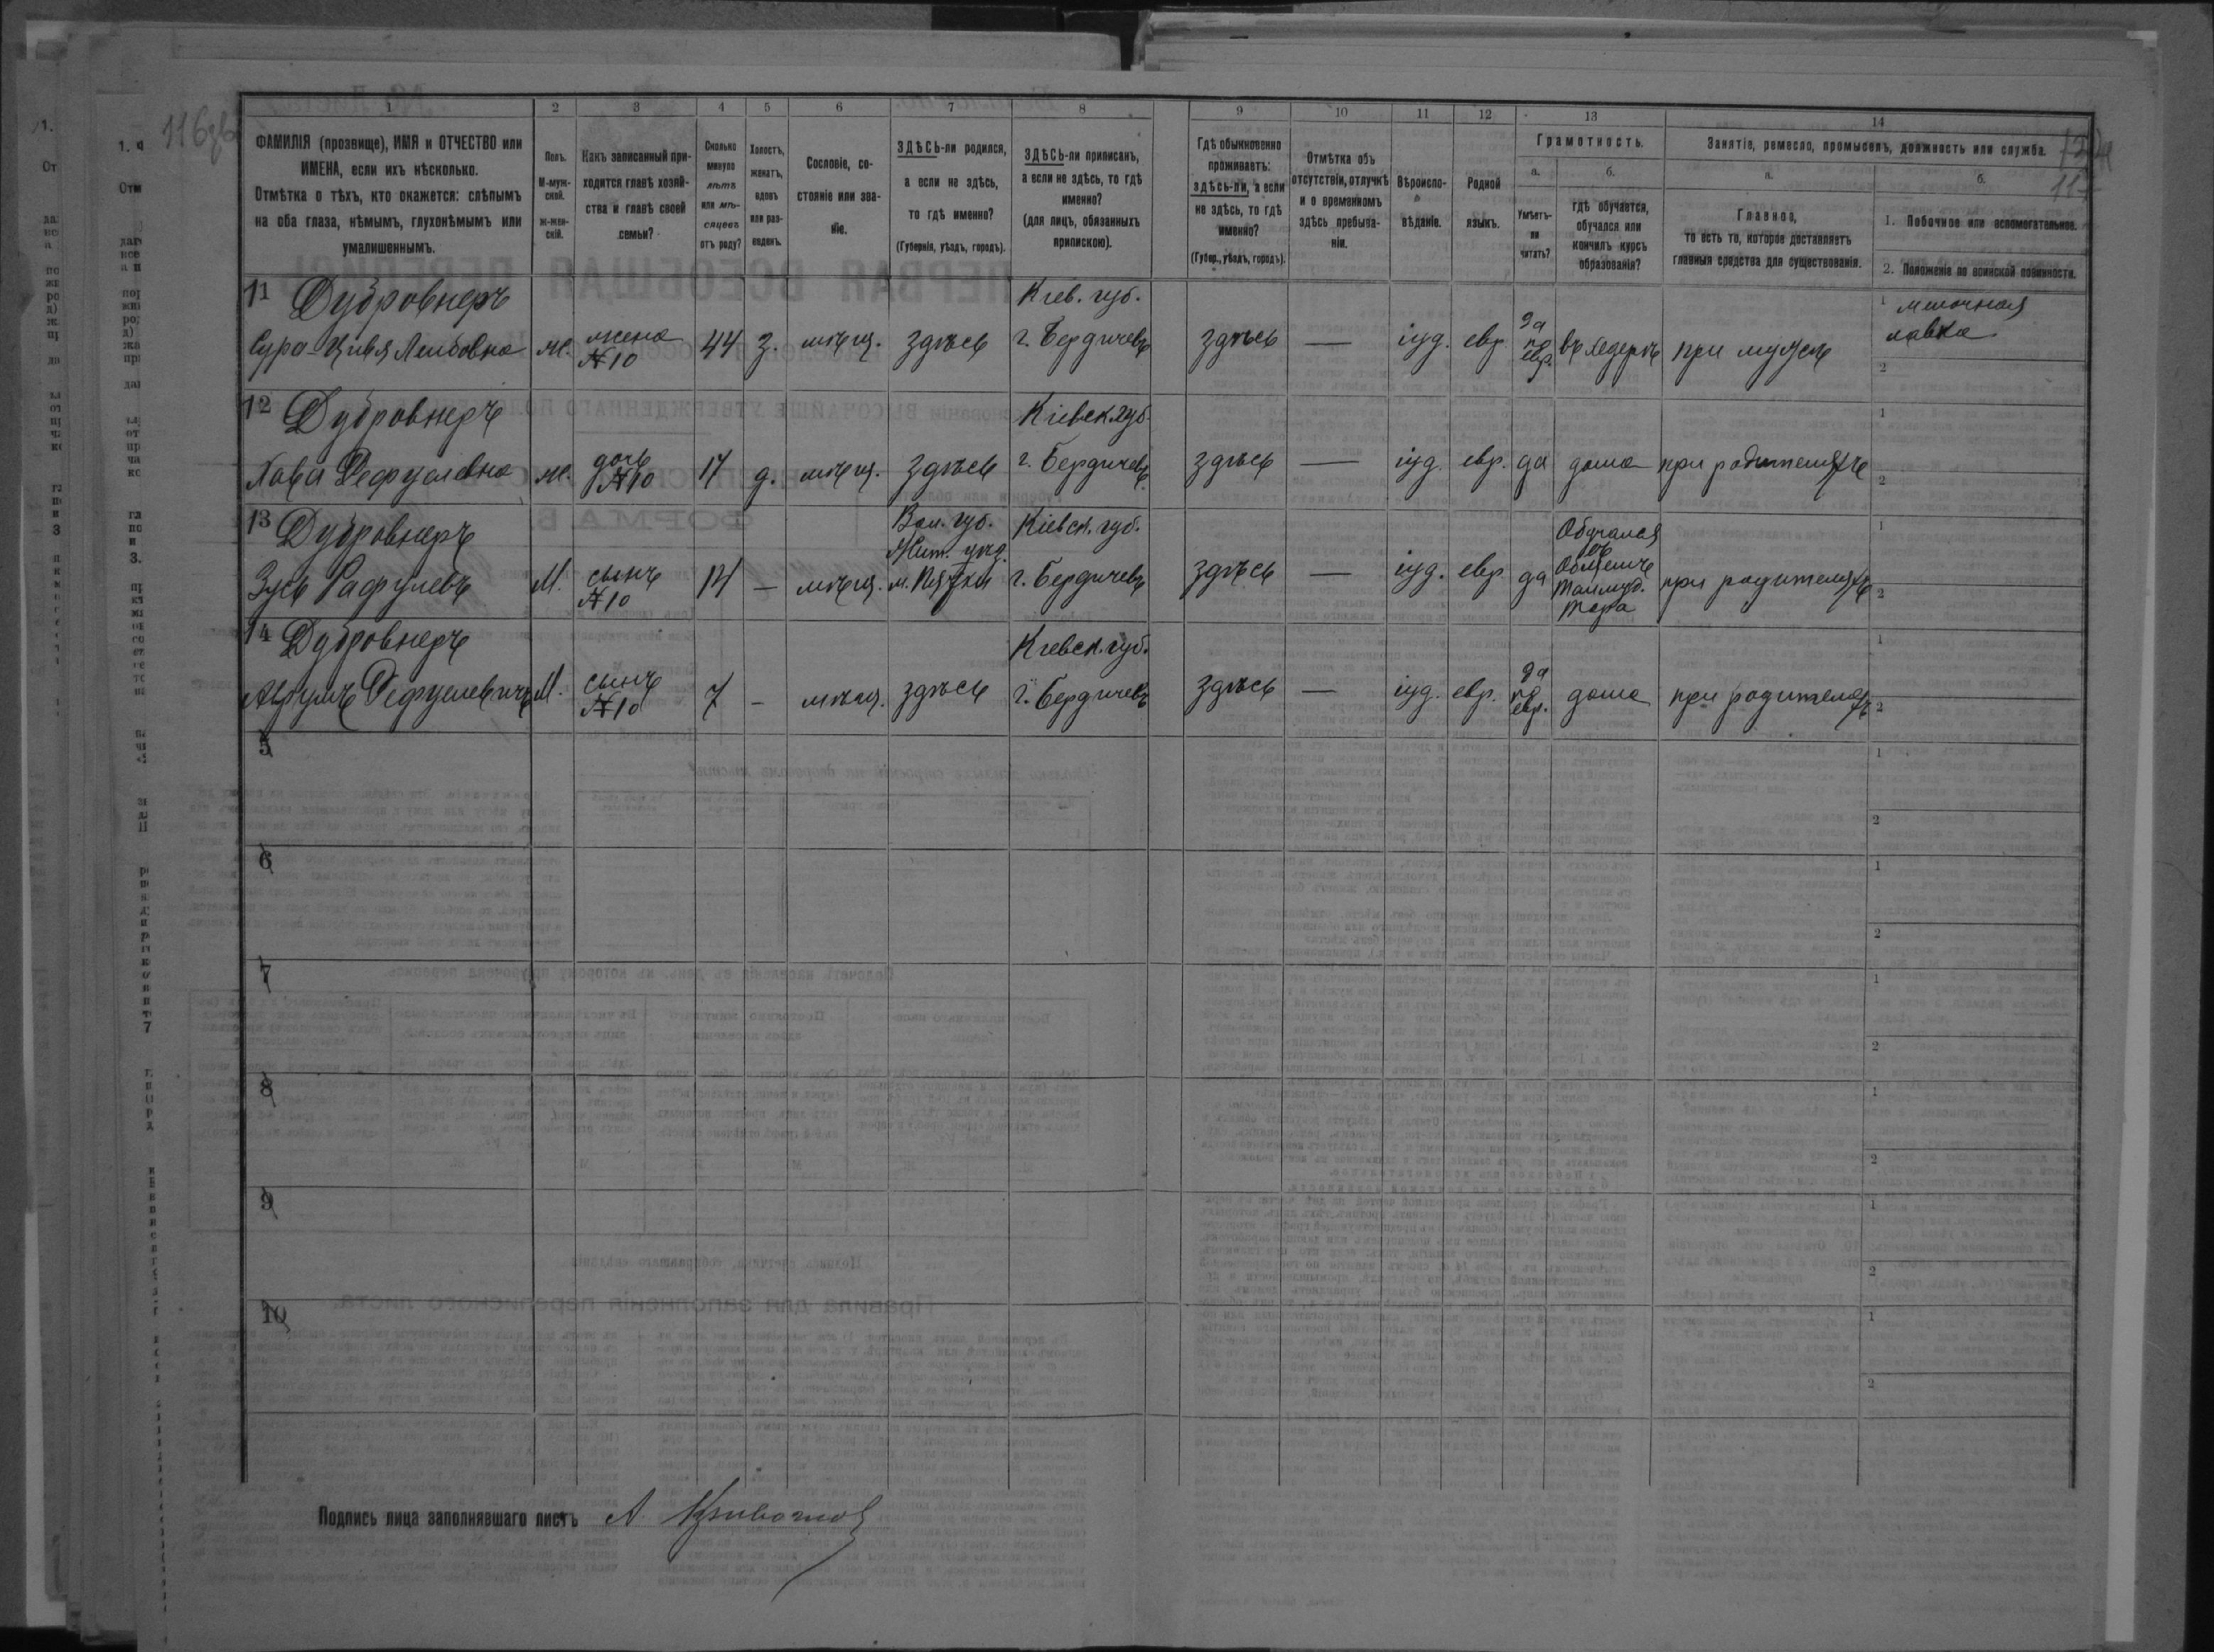 116об
1 2 3 4 5 6 7 8 9 10 11 12 13 14
ФАМИЛІЯ (прозвище), ИМЯ и ОТЧЕСТВО или
ИМЕНА, если ихъ нѣсколько.
Отмѣтка о тѣхъ, кто окажется: слѣпымъ
на оба глаза, нѣмымъ, глухонѣмымъ или
умалишеннымъ.
Полъ.
М-муж-
ской.
ж-жен-
скій.
Какъ записанный при-
ходится главѣ хозяй-
ства и главѣ своей
семьи?
Сколько
минуло
лѣтъ
или мѣ-
сяцевъ
отъ роду?
Холостъ,
женатъ,
вдовъ
или раз-
веденъ.
Сословіе, со-
стояніе или зва-
ніе.
ЗДѢСЬ-ли родился,
а если не здѣсь,
то гдѣ именно?
(Губернія, уѣздъ, городъ).
ЗДѢСЬ-ли приписанъ,
а если не здѣсь, то гдѣ
именно?
(для лицъ, обязанныхъ
припискою).
Гдѣ обыкновенно
проживаетъ:
здѣсь-ли, а если
не здѣсь, то гдѣ
именно?
(Губер., уѣздъ, городъ).
Отмѣтка объ
отсутствіи, отлучкѣ
и о временномъ
здѣсь пребыва-
ніи.
Вѣроиспо-
вѣданіе.
Родной
языкъ.
Грамотность.
а.
Умѣетъ-
ли
читать?
б.
гдѣ обучается,
обучался или
кончилъ курсъ
образованія?
Занятіе, ремесло, промыселъ, должность или служба.
а.
Главное,
то есть то, которое доставляетъ
главныя средства для существованія.
б.
1. Побочное или вспомогательное.
2. Положеніе по воинской повинности.
11 Дубровнеръ
Сура-Цивя Лейбовна
ж.
жена
№10
44
з.
мѣщ.
здѣсь
Кіев. губ.
г. Бердичевъ
здѣсь
—
іуд.
евр.
да
по
евр.
въ хедерѣ
при мужѣ
1 мелочная
лавка
2
12 Дубровнеръ
Хава Рефулевна
ж.
дочь
№10
17
д.
мѣщ.
здѣсь
Кіевск. губ.
г. Бердичевъ
здѣсь
—
іуд.
евр.
да
дома
при родителяхъ
1
2
13 Дубровнеръ
Зусь Рафулевъ
М.
сынъ
№10
14
—
мѣщ.
Вол. губ.
Жит. уѣзд.
м. Пятки
Кіевск. губ.
г. Бердичевъ
здѣсь
—
іуд.
евр.
да
Обучался
въ
Талмуд.
Тора
при родителяхъ
1
2
14 Дубровнеръ
Рефулевичъ
М.
сынъ
№10
7
-
мѣщ.
здѣсь
Кіевск. губ.
г. Бердичевъ
здѣсь
—
іуд.
евр.
да
по
евр.
дома
при родителяхъ
1
2
5
1
2
6
1
2
7
1
2
8
1
2
9
1
2
10
1
2
Подпись лица заполнявшаго листъ А